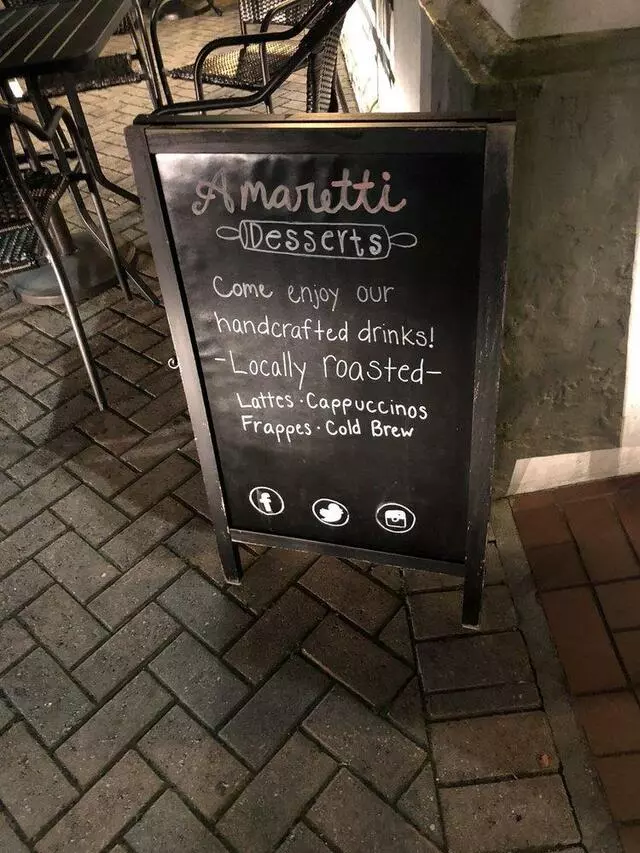 Amaretti
Desserts
Come enjoy our
handcrafted drinks!
-Locally roasted-
Lattes · Cappuccinos
Frappes · Cold Brew